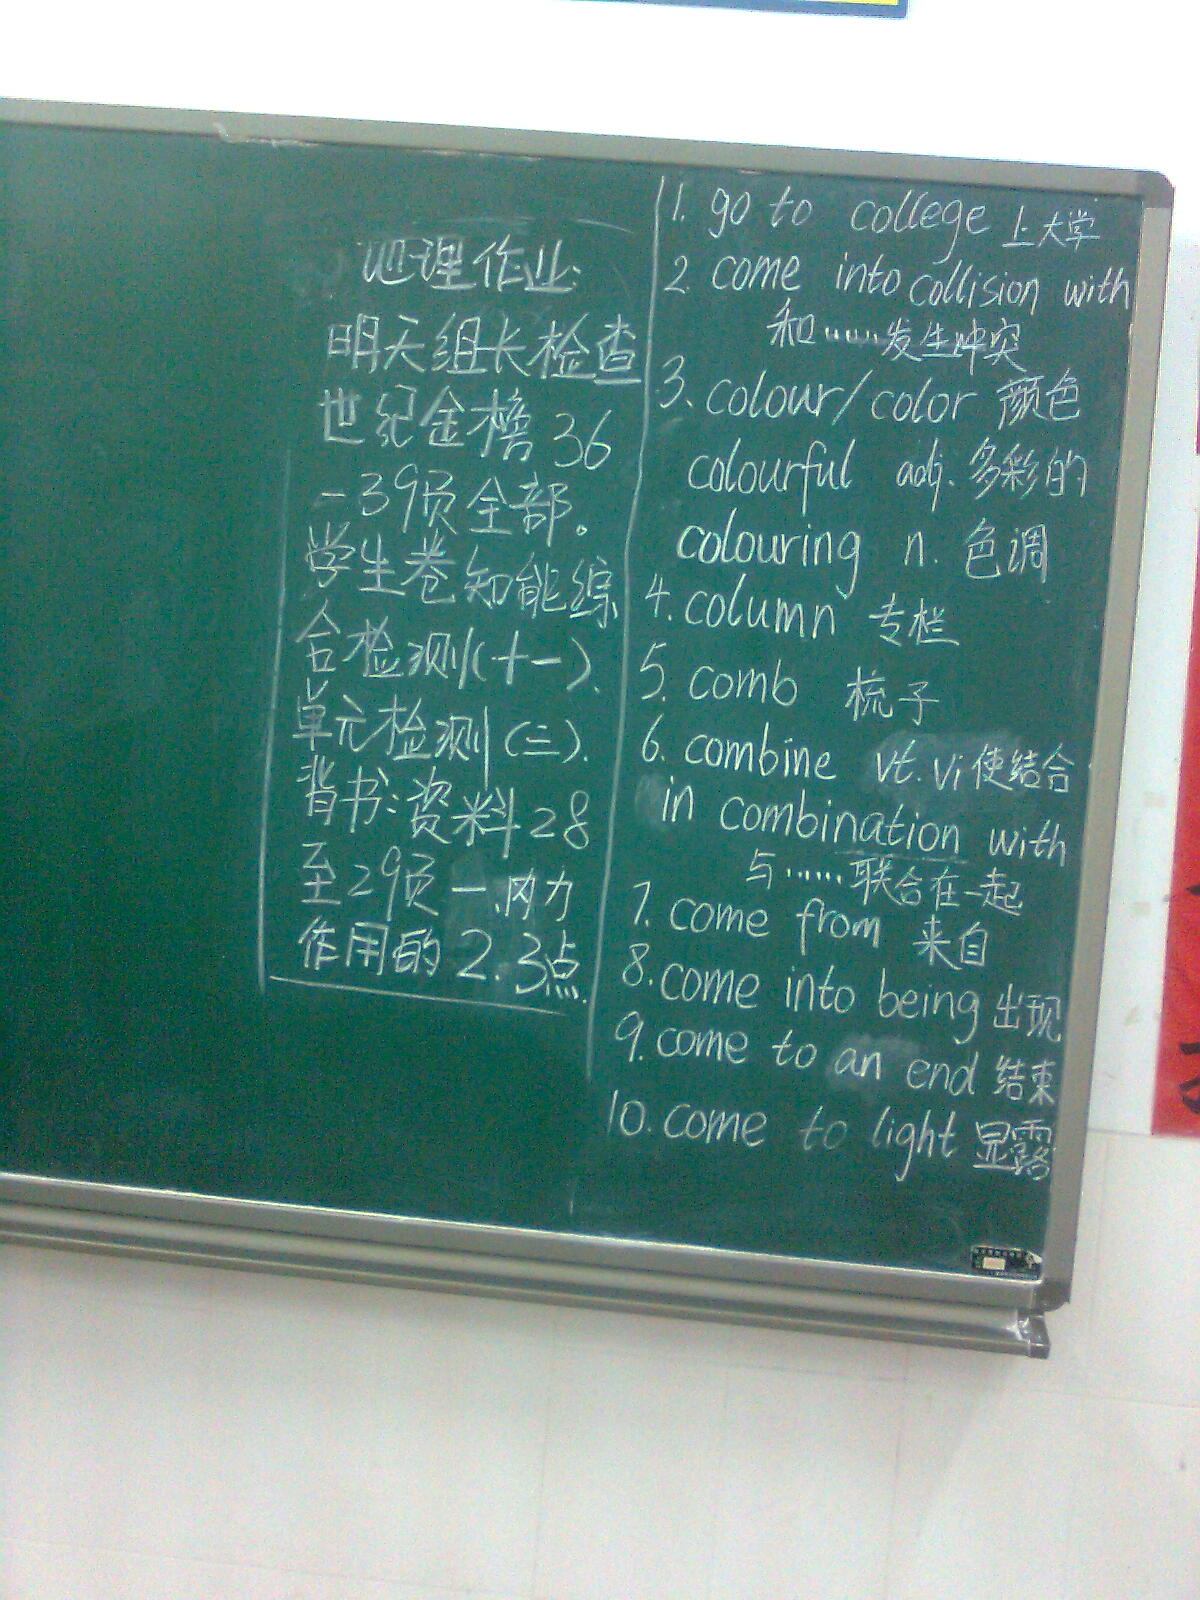 地理作业:
明天组长检查
世纪金榜36
-39页全部。
学生卷知能综
合检测(十一).
单元检测(三).
背书:资料28
至29页一.内力
作用的2.3点.
1. go to college 上大学
2. come into collision with
和……发生冲突
3. colour/color 颜色
colourful adj. 多彩的
colouring n. 色调
4. column 专栏
5. comb 梳子
6. combine vt. vi 使结合
in combination with
与……联合在一起
7. come from 来自
8. come into being 出现
9. come to an end 结束
10. come to light 显露